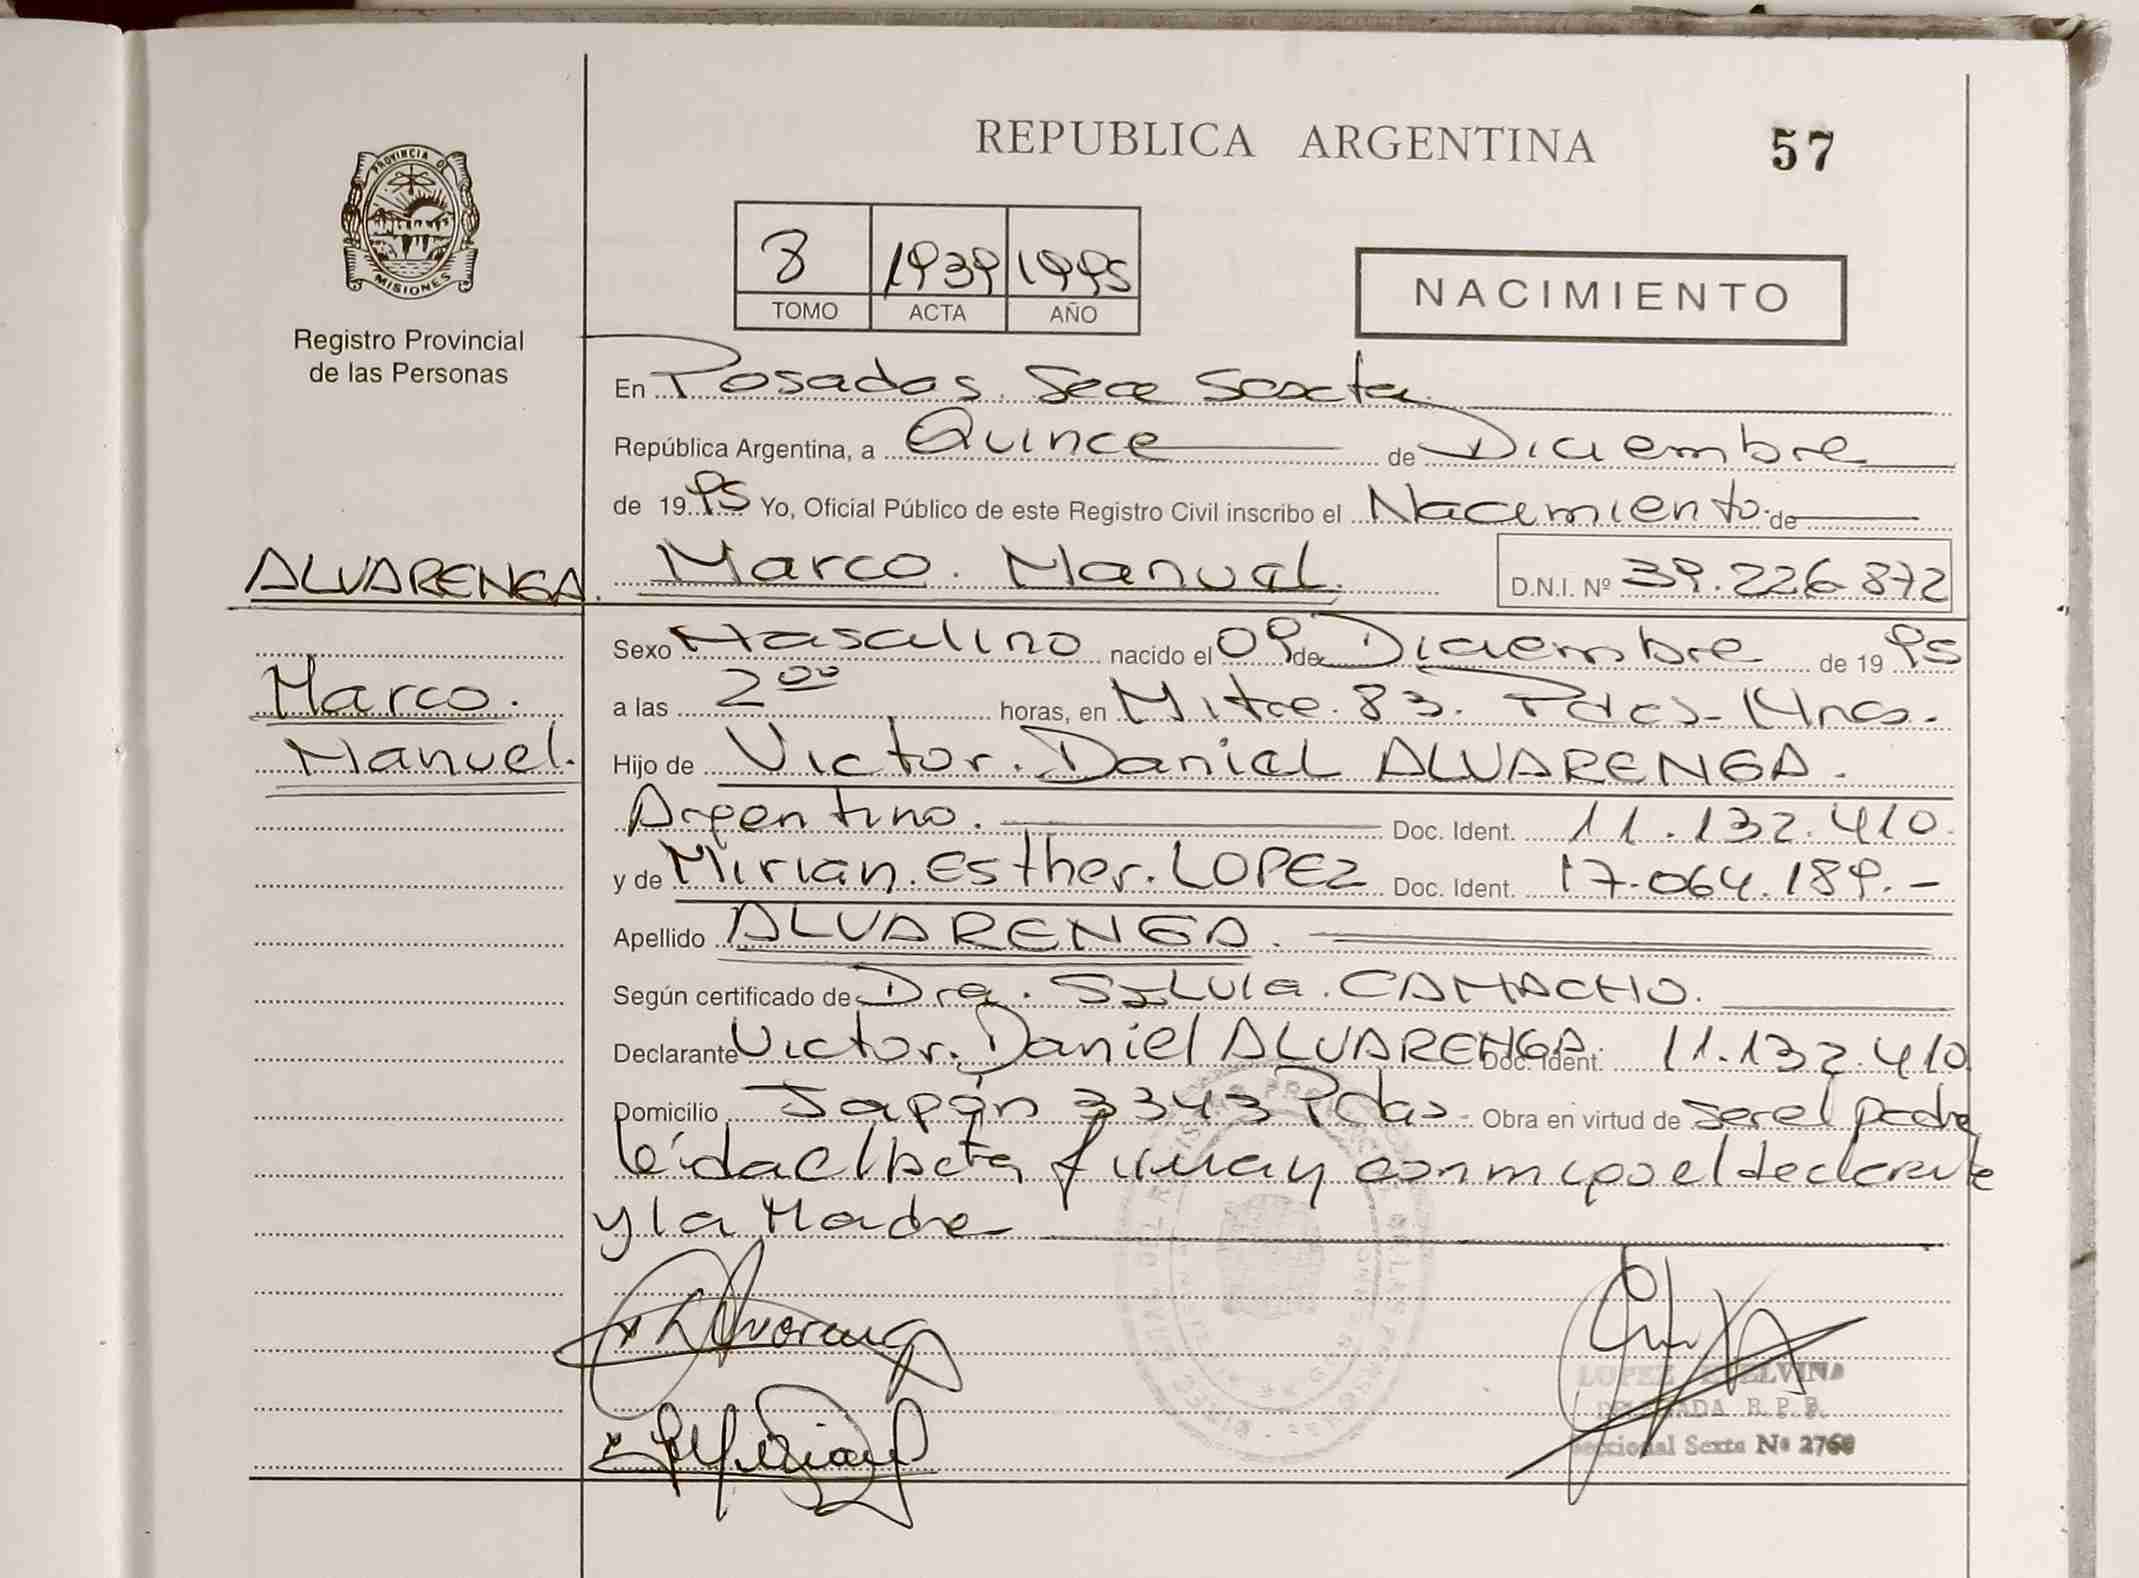 REPUBLICA ARGENTINA
57
PROVINCIA DE
MISIONES
Registro Provincial
de las Personas
8 1939 1995
TOMO ACTA AÑO
NACIMIENTO
En Posadas. Secc Sexta
República Argentina, a Quince de Diciembre
de 1995 Yo, Oficial Público de este Registro Civil inscribo el Nacimiento de
ALVARENGA. Marco. Manuel. D.N.I. Nº 39.226.872
Marco.
Manuel.
Sexo Masculino nacido el 09 de Diciembre de 1995
a las 2 00 horas, en Mitre. 83. Pdas- Mnes.
Hijo de Victor. Daniel ALVARENGA.
Argentino. Doc. Ident. 11.132.410.
y de Mirian. Esther. LOPEZ Doc. Ident. 17.064.189.-
Apellido ALVARENGA.
Según certificado de Dra. Silvia. CAMACHO.
Declarante Victor. Daniel ALVARENGA. Doc. Ident. 11.132.410
Domicilio Japón 3343 Pdas- Obra en virtud de ser el padre
leída el Acta firman conmigo el declarante
y la Madre
LOPEZ ELVINA
DELEGADA R.P.P.
Seccional Sexta Nº 2760